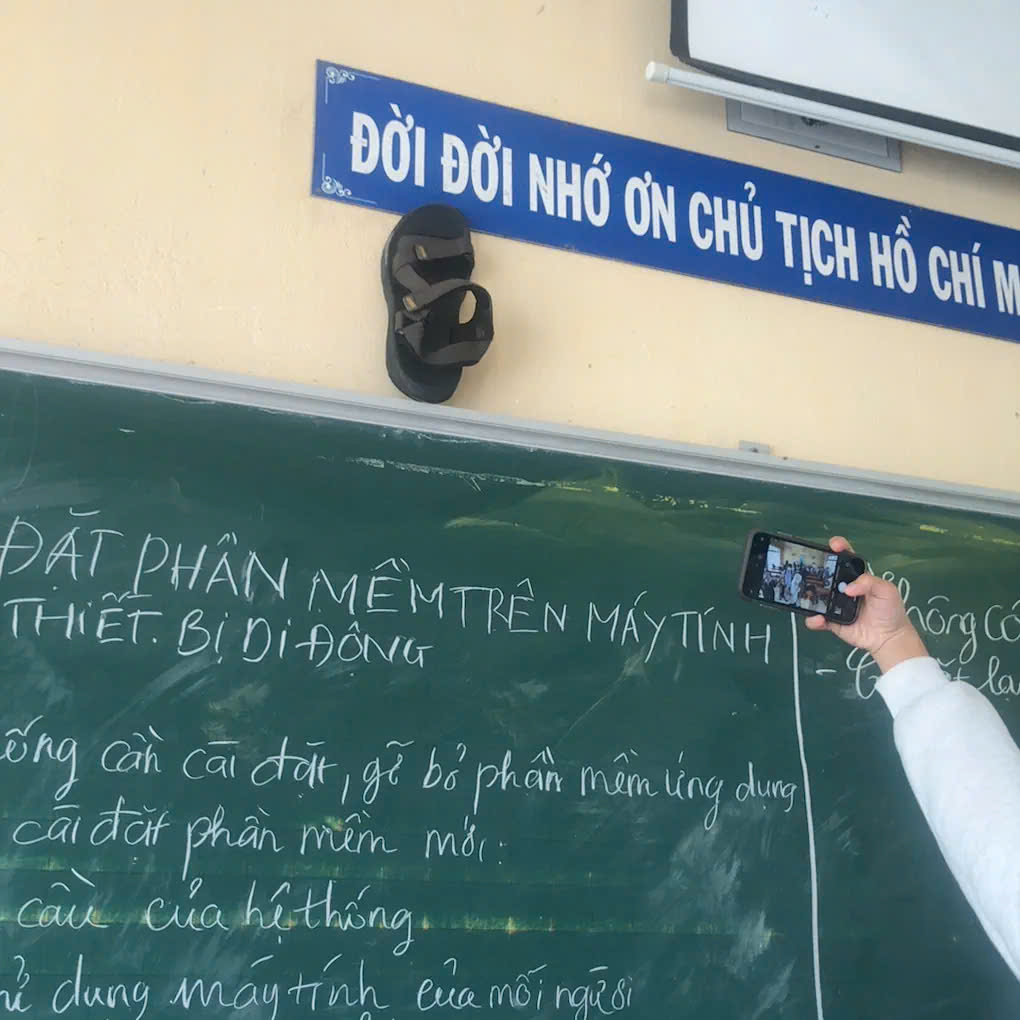 ĐỜI ĐỜI NHỚ ƠN CHỦ TỊCH HỒ CHÍ M
ĐẶT PHẦN MỀM TRÊN MÁY TÍNH
THIẾT BỊ DI ĐỘNG
ống cần cài đặt, gỡ bỏ phần mềm ứng dụng
cài đặt phần mềm mới:
cầu của hệ thống
dụng máy tính của mỗi người
hông có
lạ